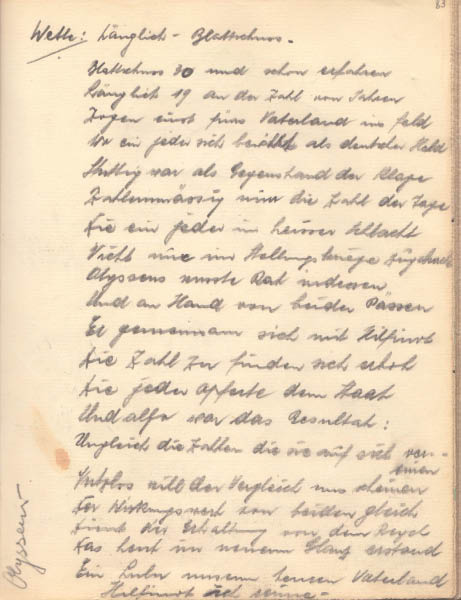 83
Wette: Länglich - Blattschuss.
Blattschuss 30 und schon erfahren
Länglich 19 an der Zahl von Jahren
Zogen einst fürs Vaterland ins Feld
Wo ein jeder sich bewährt als deutscher Held
Strittig war als Gegenstand der Klage
Zahlenmässig nur die Zahl der Tage
Die ein jeder in heisser Schlacht
Nicht nur im Stellungskriege zugebracht
Olyssens musste Rat indessen
Und an Hand von beider Pässen
Er gemeinsam sich mit Hilfinot
Die Zahl zu finden sich erbot
Die jeder opferte dem Staat
Und also war das Resultat:
Ungleich die Zahlen die sie auf sich ver-
einen
Nutzlos will der Vergleich uns scheinen
Der Wirkungswert von beiden gleich
Dient der Erhaltung von dem Reich
Das heut in neuem Glanz erstand
Ein unserm teuren Vaterland
Hilfinot
Olyssens